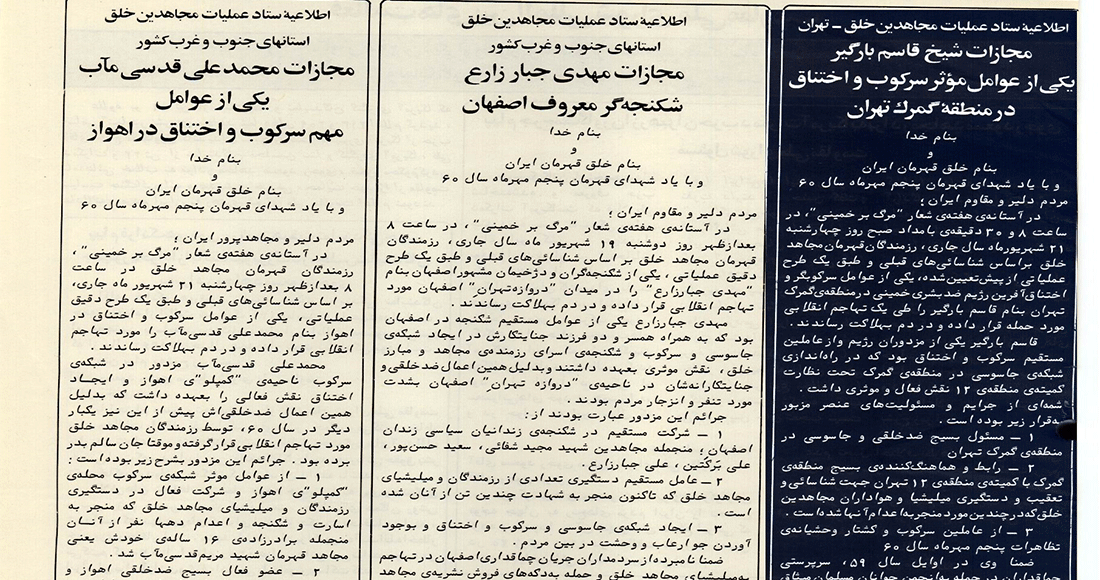 اطلاعیهٔ ستاد عملیات مجاهدین خلق – تهران
مجازات شیخ قاسم بارگیر
یکی از عوامل مؤثر سرکوب و اختناق
در منطقهٔ گمرك تهران
بنام خدا
و
بنام خلق قهرمان ایران
و با یاد شهدای قهرمان پنجم مهرماه سال ۶۰
مردم دلیر و مقاوم ایران ؛
در آستانه‌ی هفته‌ی شعار "مرگ بر خمینی"، در
ساعت ۸ و ۳۰ دقیقه‌ی بامداد صبح روز چهارشنبه
۲۱ شهریورماه سال جاری، رزمندگان قهرمان مجاهد
خلق براساس شناسائی‌های قبلی و طبق یک طرح
عملیاتی از پیش‌تعیین‌شده، یکی از عوامل سرکوبگر و
اختناق‌آفرین رژیم ضدبشری خمینی در منطقه‌ی گمرک
تهران بنام قاسم بارگیر را طی یک تهاجم انقلابی
مورد حمله قرار داده و در دم بهلاکت رساندند .
قاسم بارگیر یکی از مزدوران رژیم و ازعاملین
مستقیم سرکوب و اختناق بود که در راه‌اندازی
شبکه‌ی جاسوسی در منطقه‌ی گمرک تحت نظارت
کمیته‌ی منطقه‌ی ۱۲ نقش فعال و موثری داشت .
شمه‌ای از جرایم و مسئولیت‌های عنصر مزبور
بدقرار زیر بوده است .
۱ – مسئول بسیج ضدخلقی و جاسوسی در
منطقه‌ی گمرک تهران
۲ – رابط و هماهنگ‌کننده‌ی بسیج منطقه‌ی
گمرک با کمیته‌ی منطقه‌ی ۱۲ تهران جهت شناسائی و
تعقیب و دستگیری میلیشیا و هواداران مجاهدین
خلق که در چندین مورد منجر به اعدام آنها شده است .
۳ – از عاملین سرکوب و کشتار وحشیانه‌ی
تظاهرات پنجم مهرماه سال ۶۰
ضمنا وی در اوایل سال ۵۹، سرپرستی
اطلاعیهٔ ستاد عملیات مجاهدین خلق
استانهای جنوب و غرب کشور
مجازات مهدی جبار زارع
شکنجه‌گر معروف اصفهان
بنام خدا
و
بنام خلق قهرمان ایران
و با یاد شهدای قهرمان پنجم مهرماه سال ۶۰
مردم دلیر و مقاوم ایران ؛
در آستانه‌ی هفته‌ی شعار "مرگ بر خمینی"، در ساعت ۸
بعدازظهر روز دوشنبه ۱۹ شهریور ماه سال جاری، رزمندگان
قهرمان مجاهد خلق بر اساس شناسائی‌های قبلی و طبق یک طرح
دقیق عملیاتی ، یکی از شکنجه‌گران و دژخیمان مشهور اصفهان بنام
"مهدی جبارزارع" را در میدان "دروازه‌تهران" اصفهان مورد
تهاجم انقلابی قرار داده و در دم بهلاکت رساندند .
مهدی جبارزارع یکی از عوامل مستقیم شکنجه در اصفهان
بود که به همراه همسر و دو فرزند جنایتکارش در ایجاد شبکه‌ی
جاسوسی و سرکوب و شکنجه‌ی اسرای رزمنده‌ی مجاهد و مبارز
خلق ، نقش موثری بعهده داشتند و بدلیل همین اعمال ضدخلقی و
جنایتکارانه‌شان در ناحیه‌ی "دروازه تهران" اصفهان بشدت
مورد تنفر و انزجار مردم بودند .
جرائم این مزدور عبارت بودند از :
۱ – شرکت مستقیم در شکنجه‌ی زندانیان سیاسی زندان
اصفهان ؛ منجمله مجاهدین شهید مجید شفائی ، سعید حسن‌پور،
علی برکتین ، علی جبارزارع .
۲ – عامل مستقیم دستگیری تعدادی از رزمندگان و میلیشیای
مجاهد خلق که تاکنون منجر به شهادت چندین تن از آنان شده
است .
۳ – ایجاد شبکه‌ی جاسوسی و سرکوب و اختناق و بوجود
آوردن جو ارعاب و وحشت در بین مردم .
ضمنا نامبرده از سردمداران جریان چماقداری اصفهان در تهاجم
به میلیشیای مجاهد خلق و حمله به دکه‌های فروش نشریه‌ی مجاهد
اطلاعیهٔ ستاد عملیات مجاهدین خلق
استانهای جنوب و غرب کشور
مجازات محمدعلی قدسی مآب
یکی از عوامل
مهم سرکوب و اختناق در اهواز
بنام خدا
و
بنام خلق قهرمان ایران
و با یاد شهدای قهرمان پنجم مهرماه سال ۶۰
مردم دلیر و مجاهدپرور ایران ؛
در آستانه‌ی هفته‌ی شعار "مرگ بر خمینی"،
رزمندگان قهرمان مجاهد خلق در ساعت
۸ بعدازظهر روز چهارشنبه ۲۱ شهریور ماه جاری،
بر اساس شناسائی‌های قبلی و طبق یک طرح دقیق
عملیاتی ، یکی از عوامل سرکوب و اختناق در
اهواز بنام محمدعلی قدسی‌مآب را مورد تهاجم
انقلابی قرار داده و در دم بهلاکت رساندند .
محمدعلی قدسی‌مآب مزدور در شبکه‌ی
سرکوب ناحیه‌ی "کمپلو"ی اهواز و ایجاد
اختناق نقش فعالی را بعهده داشت که بدلیل
همین اعمال ضدخلقی‌اش پیش از این نیز یکبار
دیگر در سال ۶۰، توسط رزمندگان مجاهد خلق
مورد تهاجم انقلابی قرار گرفته و موقتا جان سالم بدر
برده بود . جرائم این مزدور بشرح زیر بوده است :
۱ – از عوامل موثر شبکه‌ی سرکوب محله‌ی
"کمپلو"ی اهواز و شرکت فعال در دستگیری
رزمندگان و میلیشیای مجاهد خلق که منجر به
اسارت و شکنجه و اعدام دهها نفر از آنسان
منجمله برادرزاده‌ی ۱۶ ساله‌ی خودش یعنی
مجاهد قهرمان شهید مریم قدسی‌مآب شد .
۲ – عضو فعال بسیج ضدخلقی اهواز و